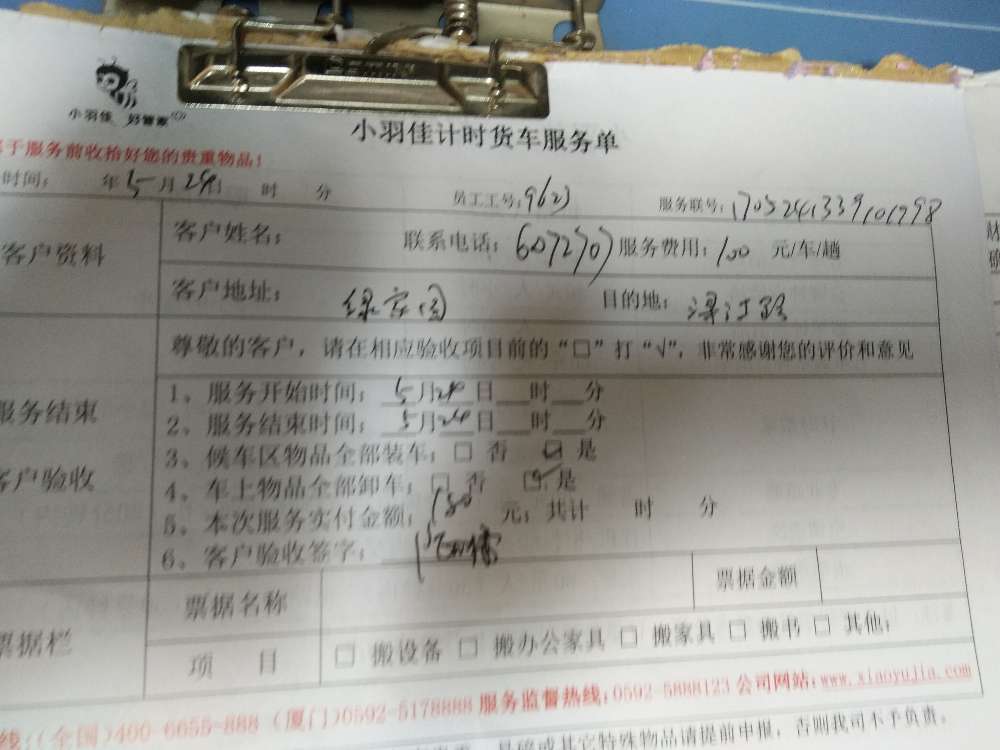 小羽佳 好管家
小羽佳计时货车服务单
于服务前收拾好您的贵重物品!
时间: 年 5月 24日 时 分 员工工号: 9623 服务联号:
客户资料 客户姓名: 联系电话: 6072707 服务费用: 100 元/车/趟
客户地址: 绿家园 目的地:
尊敬的客户,请在相应验收项目前的“□”打“√”,非常感谢您的评价和意见
服务结束
客户验收
1、服务开始时间: 5月24日 时 分
2、服务结束时间: 5月24日 时 分
3、候车区物品全部装车: □ 否 ☑ 是
4、车上物品全部卸车: □ 否 ☑ 是
5、本次服务实付金额: 元; 共计 时 分
6、客户验收签字:
票据栏 票据名称 票据金额
项 目 □ 搬设备 □ 搬办公家具 □ 搬家具 □ 搬书 □ 其他:
线:(全国)400-6655-888 (厦门)0592-5178888 服务监督热线:0592-5888123 公司网站:www.xiaoyujia.com
或其它特殊物品请提前申报,否则我司不予负责。